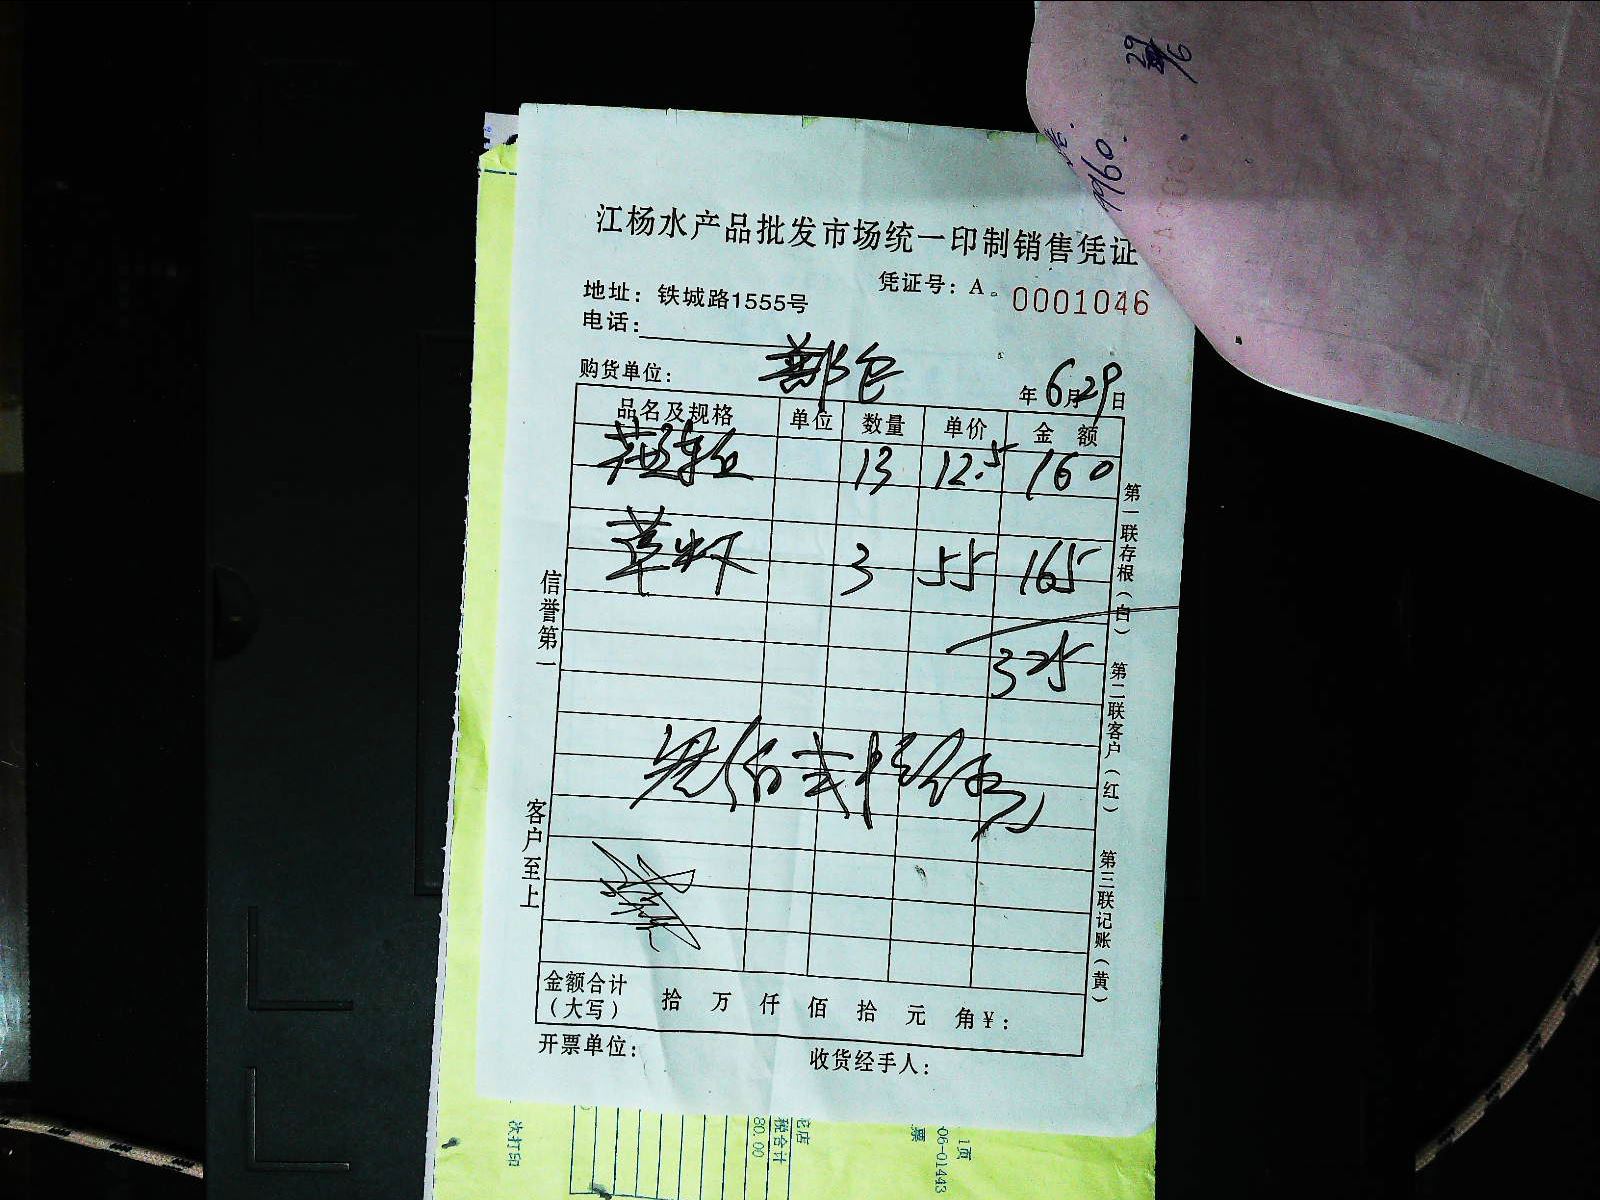 29/6
960.
江杨水产品批发市场统一印制销售凭证
凭证号：A 0001046
地址：铁城路1555号
电话：
购货单位： 年 6月29日
品名及规格 单位 数量 单价 金额
13 12.5 160
草虾 3 55 165
325
叁佰贰拾伍元
金额合计（大写） 拾 万 仟 佰 拾 元 角 ¥：
开票单位： 收货经手人：
信誉第一
客户至上
第一联存根（白）
第二联客户（红）
第三联记账（黄）
次打印
80.00
税合计
票
06-01443
1页